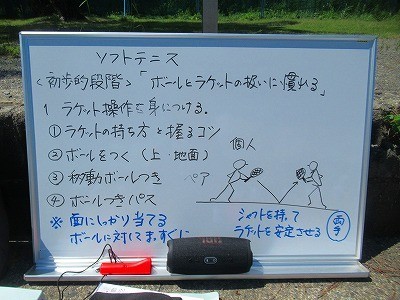 ソフトテニス
<初歩的段階>「ボールとラケットの扱いに慣れる」
1 ラケット操作を身につける.
①ラケットの持ち方と握るコツ
②ボールをつく(上・地面) 個人
③移動ボールつき ペア
④ボールつきパス
※面にしっかり当てる
ボールに対してまっすぐに
シャフトを持って
ラケットを安定させる
両手